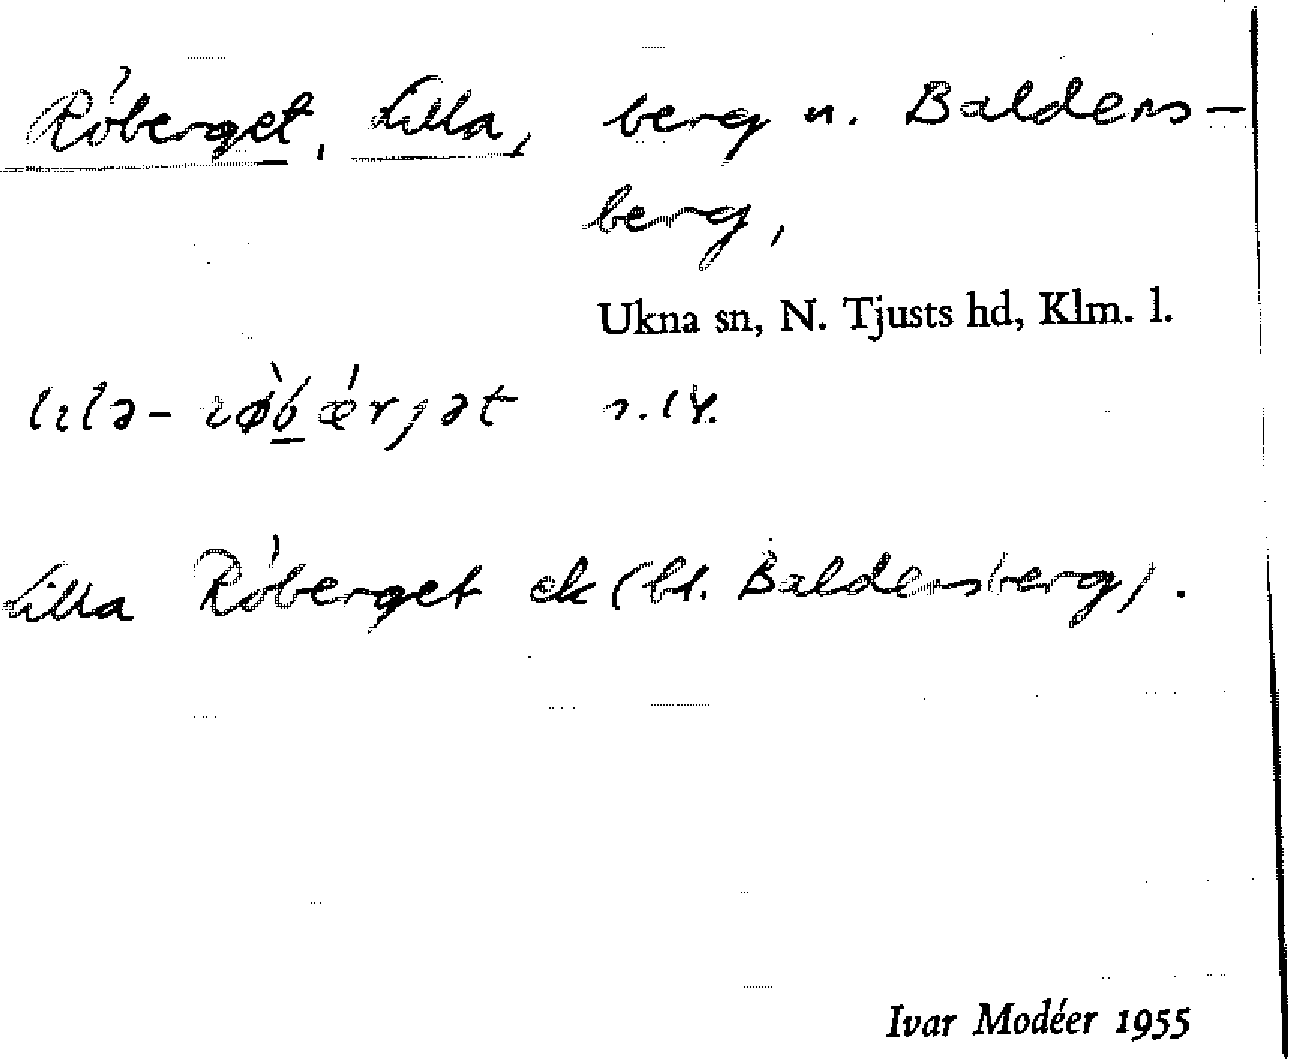 Röberget, Lilla, berg n. Baldens-
berg,
Ukna sn, N. Tjusts hd, Klm. l.
Lilla Röberget ek (bl. Baldersberg).
Ivar Modéer 1955